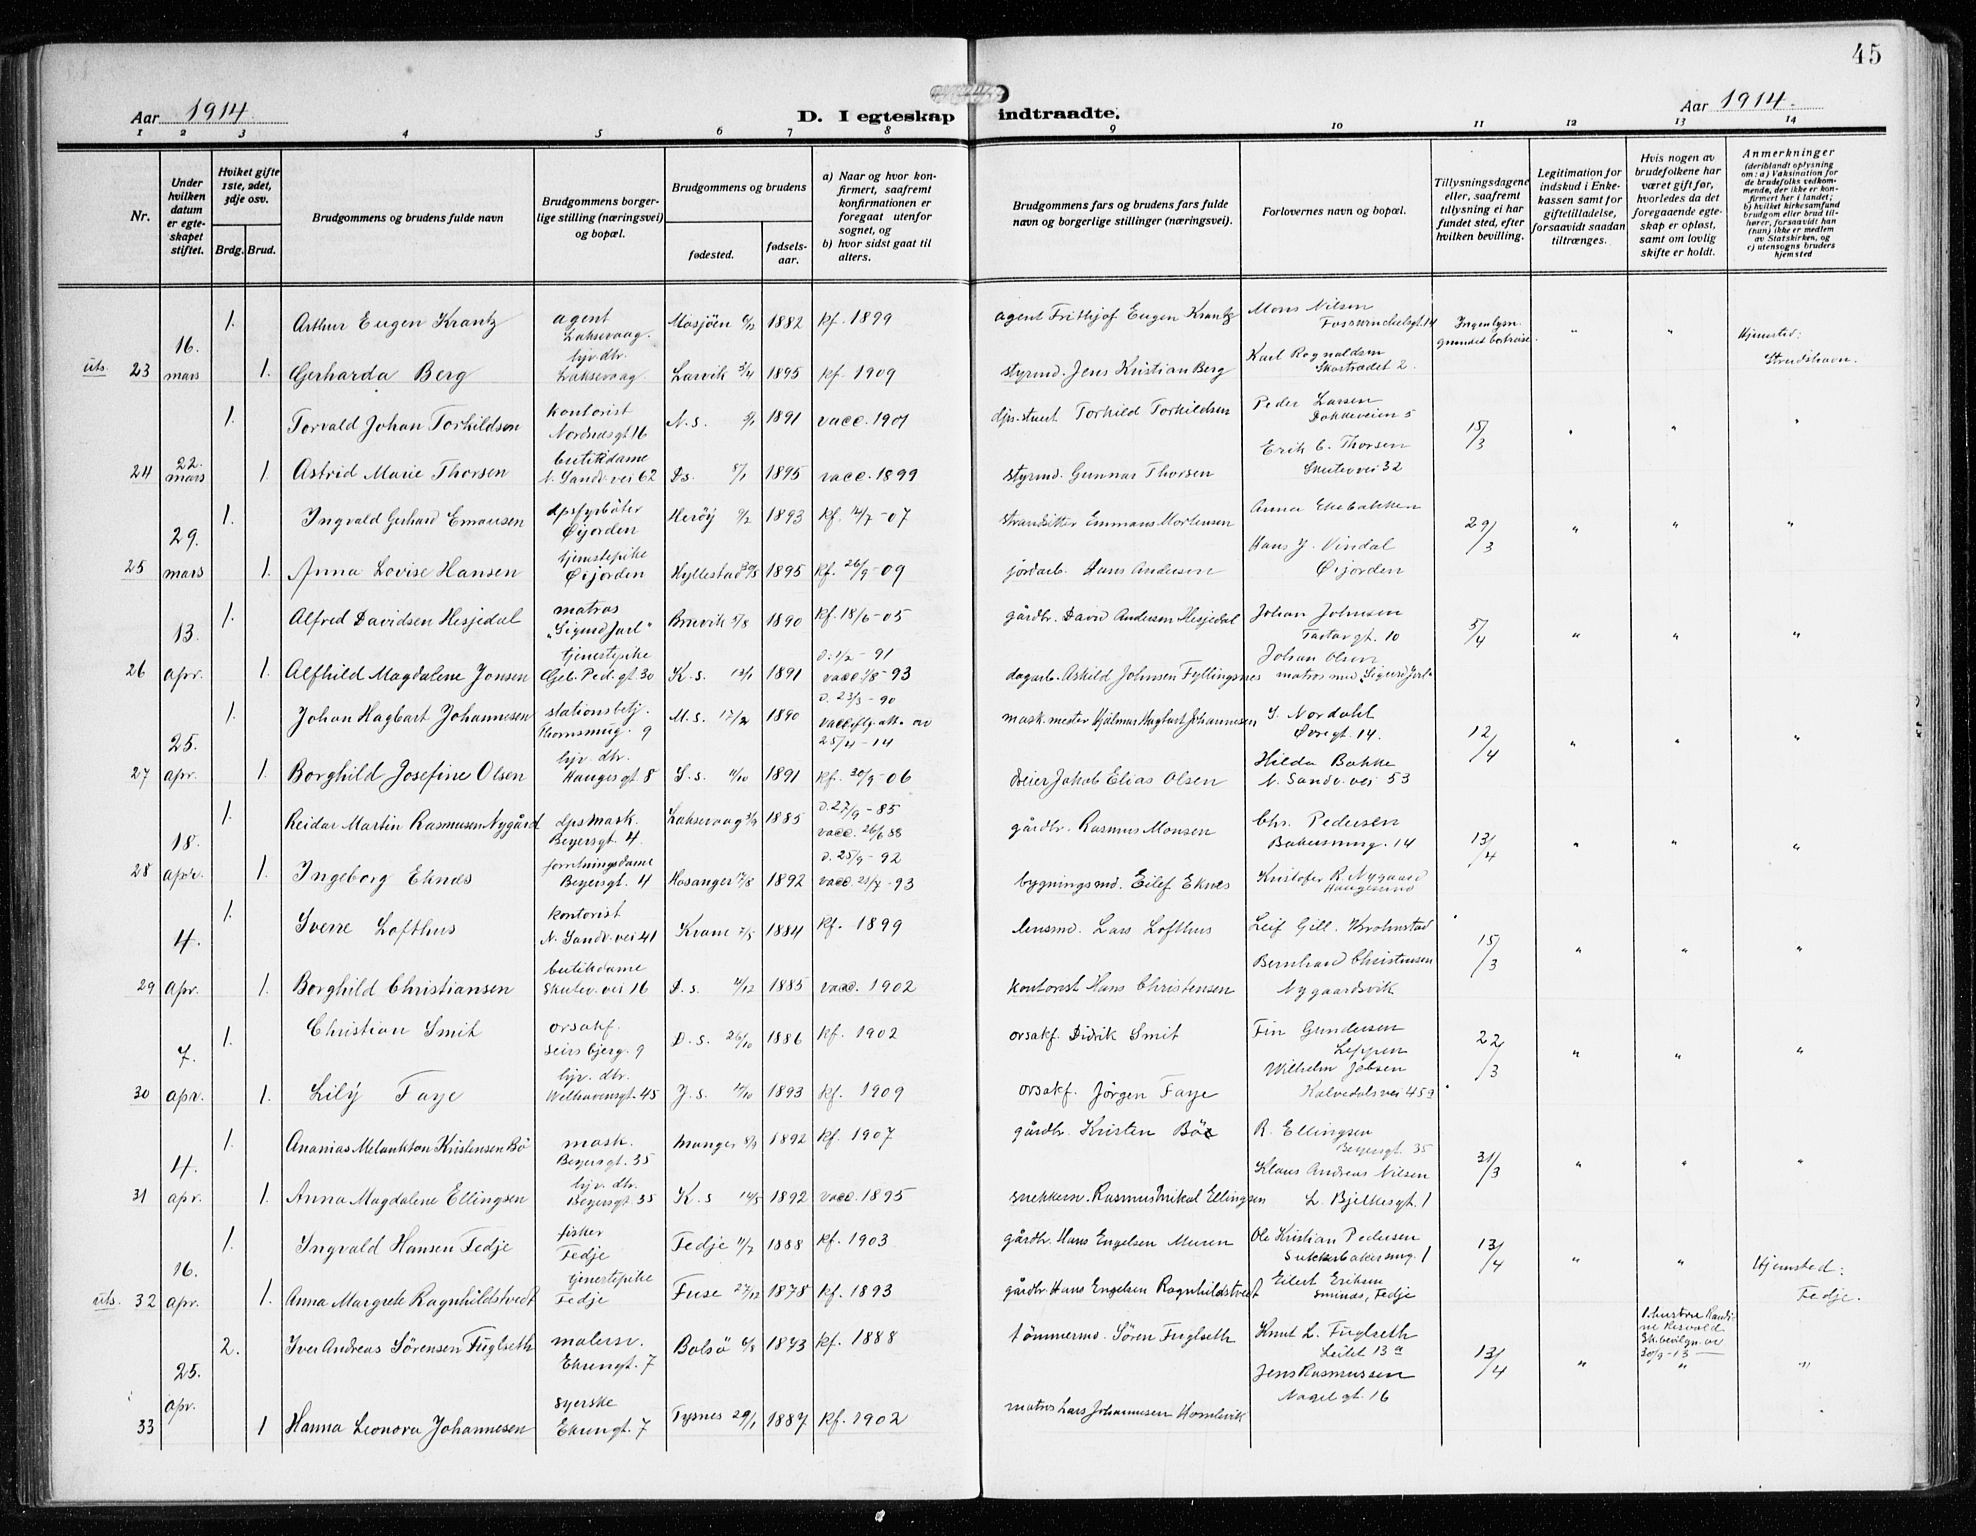 45
Aar 1914.
D. I egteskap indtraadte.
Aar 1914.
1 2 3 4 5 6 7 8 9 10 11 12 13 14
Nr.
Under hvilken datum er egteskapet stiftet.
Hviket gifte 1ste, 2det, 3dje osv.
Brdg. Brud.
Brudgommens og brudens fulde navn
Brudgommens borgerlige stilling (næringsvei) og bopæl.
Brudgommens og brudens
fødested.
fødselsaar.
a) Naar og hvor konfirmert, saafremt konfirmationen er foregaat utenfor sognet, og
b) hvor sidst gaat til alters.
Brudgommens fars og brudens fars fulde navn og borgerlige stillinger (næringsvei).
Forlovernes navn og bopæl.
Tillysningsdagene eller, saafremt tillysning ei har fundet sted, efter hvilken bevilling.
Legitimation for indskud i Enkekassen samt for giftetilladelse, forsaavidt saadan tiltrænges.
Hvis nogen av brudefolkene har været gift før, hvorledes da det foregaaende egteskap er opløst, samt om lovlig skifte er holdt.
Anmerkninger
(deriblandt oplysning om: a) Vaksination for de brudefolks vedkommende, der ikke er konfirmert her i landet; b) hvilket kirkesamfund brudgom eller brud tilhører, forsaavidt han (hun) ikke er medlem av Statskirken, og c) utensogns bruders hjemsted
16. 1. Arthur Eugen Krantz agent Laksevaag. Mosjöen 6/12 1882 kf. 1899 agent Frithjof Eugen Krantz Mons Nilsen Fosswinckelsgt. 14 Ingen lysn. grundet bortreise. " " Hjemsted:
uts. 23 mars 1. Gerharda Berg hjv. dtr. Laksevaag. Larvik 3/4 1895 kf. 1909 styrmd. Jens Kristian Berg Karl Rognaldsen Skostrædet 2. Strudshavn.
1. Torvald Johan Torkildsen kontorist Nordnæsgt 16 N. s. 1891 vacc. 1901 Torkild Torkildsen Peder Larsen Dokkeveien 5 15/3 " " "
24 22. mars 1. Astrid Marie Thorsen butikdame N. Sandv. vei 62 Ds. 8/1 1895 vacc. 1899 styrmd. Gunnar Thorsen Erik C. Thorsen Skutevei 32
29. 1. Ingvald Gerhard Emausen dpsfyrböter Öijorden Heröy 9/2 1893 kf. 12/7 - 07 strandsitter Emmaus Mortensen Anna Ekebakken 29/3 " " "
25 mars 1. Anna Lovise Hansen tjenestepike Öijorden Hyllestad 30/5 1895 kf. 26/9 - 09 jordarb. Hans Andersen Hans J. Vindal Öijorden
13. 1. Alfred Davidsen Hesjedal matros "Sigurd Jarl" Brevik 5/8 1890 kf. 18/6 - 05 gårdbr. David Andersen Hesjedal Johan Johnsen Tartargt. 10 5/4 " " "
26 apr. 1. Alfhild Magdalene Jonsen tjenestepike Geb. Ped. gt. 30 K. s. 13/1 1891 d. 1/2 - 91 vacc. 1/8 - 93 dagarb. Askild Johnsen Fyllingsnes Johan Olsen matros med "Sigurd Jarl"
25. 1. Johan Hagbart Johannesen stationsbetj. Thormsmug. 9 M. s. 17/2 1890 d. 23/3 - 90 vacc. iflg. att. av 25/4 - 14 mask. mester Hjalmar Hagbart Johannesen S. Nordahl Övregt. 14. 12/4 " " "
27 apr. 1. Borghild Josefine Olsen hjv. dtr. Haugesgt 8 S. s. 11/10 1891 kf. 30/9 - 06 Jakob Elias Olsen Hilda Bakke N. Sandv. vei 53
18. 1. Reidar Martin Rasmusen Nygård dpsmask. Beyersgt. 4 Laksevaag 3/9 1885 d. 27/9 - 85 vacc. 26/6 88 gårdbr. Rasmus Monsen Chr. Pedersen Bakersmug. 14 13/4 " " "
28 apr. 1. Ingeborg Eknes forretningsdame Beyersgt. 4 Hosanger 17/8 1892 d. 25/9 - 92 vacc. 25/7 - 93 bygningsmd. Eilef Eknes Kristofer R. Nygaard Haugesund
4. 1. Sverre Lofthus kontorist N. Sandv. vei 41 Krane 7/5 1884 kf. 1899 lensmd. Lars Lofthus Leif Gill. Krohnstad 15/3 " " "
29 apr. 1. Borghild Christiansen butikdame Skutev. vei 16 D. s. 11/12 1885 vacc. 1902 kontorist Hans Christensen Bernhard Christensen Nygaardsvik
7. 1. Christian Smit orsakf. Seirsbjerg. 9 D. s. 26/10 1886 kf. 1902 orsakf. Didrik Smit Fin Gundersen Leppen 22/3 " " "
30 apr. 1. Lily Faye hjv. dtr. Welhavensgt. 45 J. s. 11/10 1893 kf. 1909 orsakf. Jörgen Faye Wilhelm Jebsen Kalvedalsvei 45a
4. 1. Ananias Melankton Kristensen Bö mask. Beyersgt. 35 Manger 8/9 1892 kf. 1907 gårdbr. Kristen Bö R. Ellingsen Beyersgt. 35 31/3 " " "
31 apr. 1. Anna Magdalene Ellingsen hjv. dtr. Beyersgt 35 K. s 14/5 1892 vacc. 1895 snekkerm. Rasmus Mikal Ellingsen Klaus Andreas Nilsen L. Bjelkesgt. 1
16. 1. Ingvald Hansen Fedje fisker Fedje Fedje 11/7 1888 kf. 1903 gårdbr. Hans Engelsen Muren Ole Kristian Pedersen Sukkerbakersmug. 1 13/4 " " Hjemsted:
uts. 32 apr. 1. Anna Margrete Ragnhildstvedt tjenestepike Fedje Fuse 27/12 1878 kf. 1893 gårdbr Hans Engelsen Ragnhildstvedt Eilert Eriksen Sminas, Fedje Fedje.
25. 2. Iver Andreas Sörensen Fuglseth malersv. Ekrengt. 7 Bolsö 6/8 1873 kf. 1888 tömmermd. Sören Fuglseth Knut L. Fuglseth Leitet 13a 13/4 " 1. hustru Risvold Sk.bevilgn. av 30/9 - 13 " "
33 apr. 1 Hanna Leonora Johannesen syerske Ekrengt. 7 Tysnes 29/1 1887 kf. 1902 matros Lars Johannesen Homlevik Jens Rasmussen Nagelgt. 16